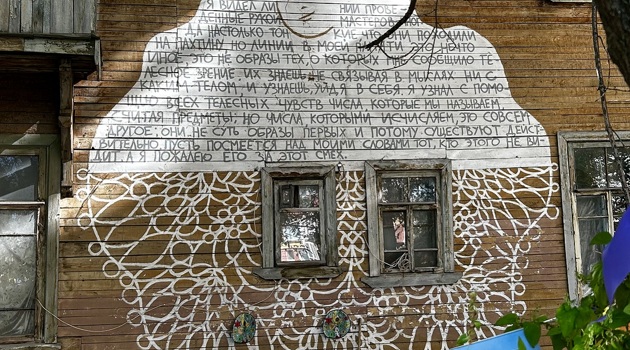 Я ВИДЕЛ ЛИ НИИ ПРОВЕ
ДЕННЫЕ РУКОЙ МАСТЕРОВ
ДА НАСТОЛЬКО ТОН КИЕ, ЧТО ОНИ ПОХОДИЛИ
НА ПАУТИНУ. НО ЛИНИИ В МОЕЙ ПАМЯТИ ЭТО НЕЧТО
ИНОЕ, ЭТО НЕ ОБРАЗЫ ТЕХ, О КОТОРЫХ МНЕ СООБЩИЛО ТЕ
ЛЕСНОЕ ЗРЕНИЕ. ИХ ЗНАЕШЬ, НЕ СВЯЗЫВАЯ В МЫСЛЯХ НИ С
КАКИМ ТЕЛОМ, И УЗНАЕШЬ, УЙДЯ В СЕБЯ. Я УЗНАЛ С ПОМО
ЩЬЮ ВСЕХ ТЕЛЕСНЫХ ЧУВСТВ ЧИСЛА, КОТОРЫЕ МЫ НАЗЫВАЕМ,
СЧИТАЯ ПРЕДМЕТЫ; НО ЧИСЛА, КОТОРЫМИ ИСЧИСЛЯЕМ, ЭТО СОВСЕМ
ДРУГОЕ; ОНИ НЕ СУТЬ ОБРАЗЫ ПЕРВЫХ И ПОТОМУ СУЩЕСТВУЮТ ДЕЙСТ
ВИТЕЛЬНО. ПУСТЬ ПОСМЕЕТСЯ НАД МОИМИ СЛОВАМИ ТОТ, КТО ЭТОГО НЕ ВИ
ДИТ, А Я ПОЖАЛЕЮ ЕГО ЗА ЭТОТ СМЕХ.